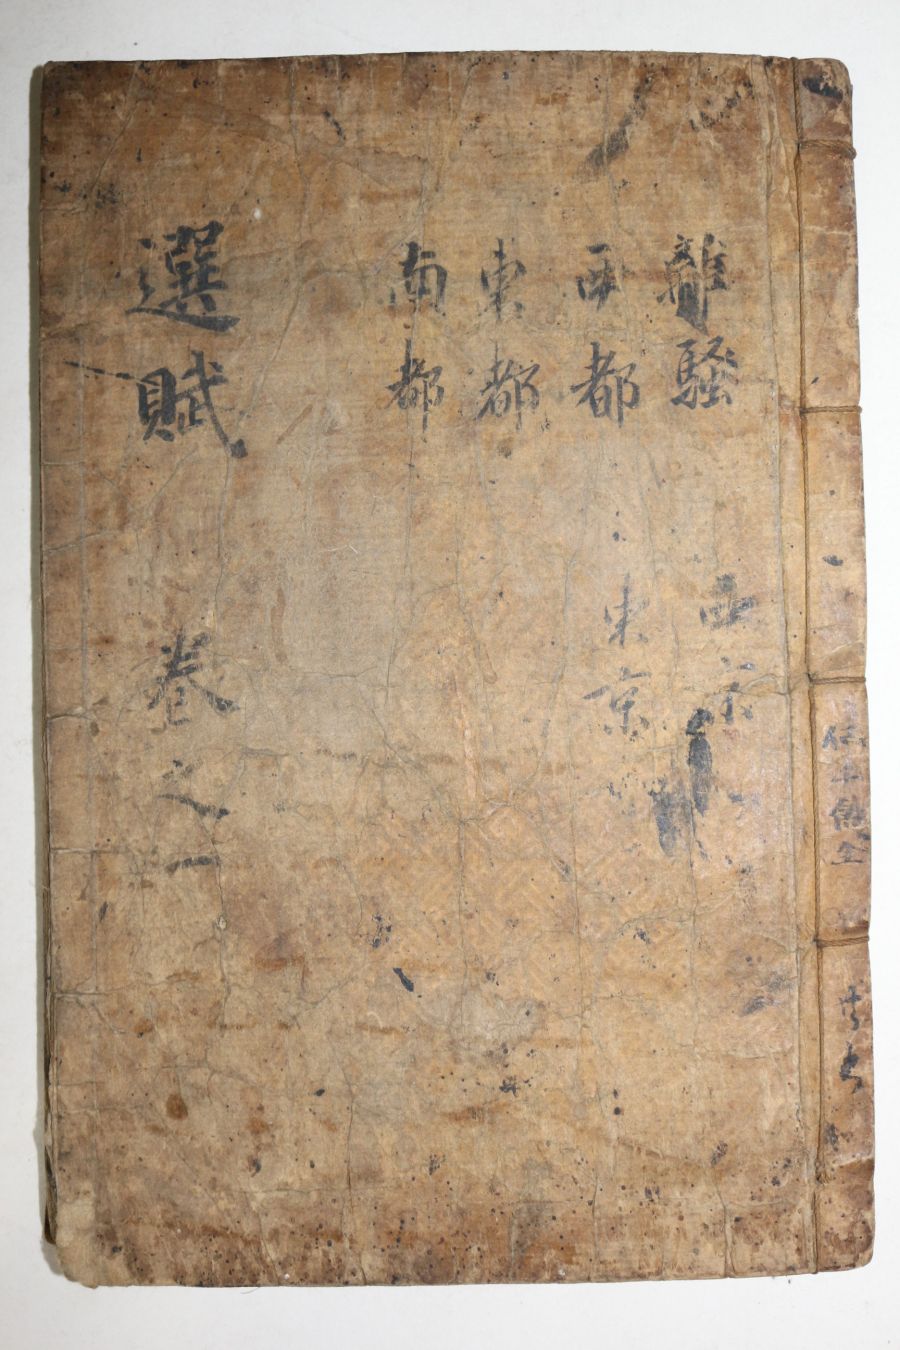 離騷
西都
東都
南都
西京
東京
選賦 卷之一